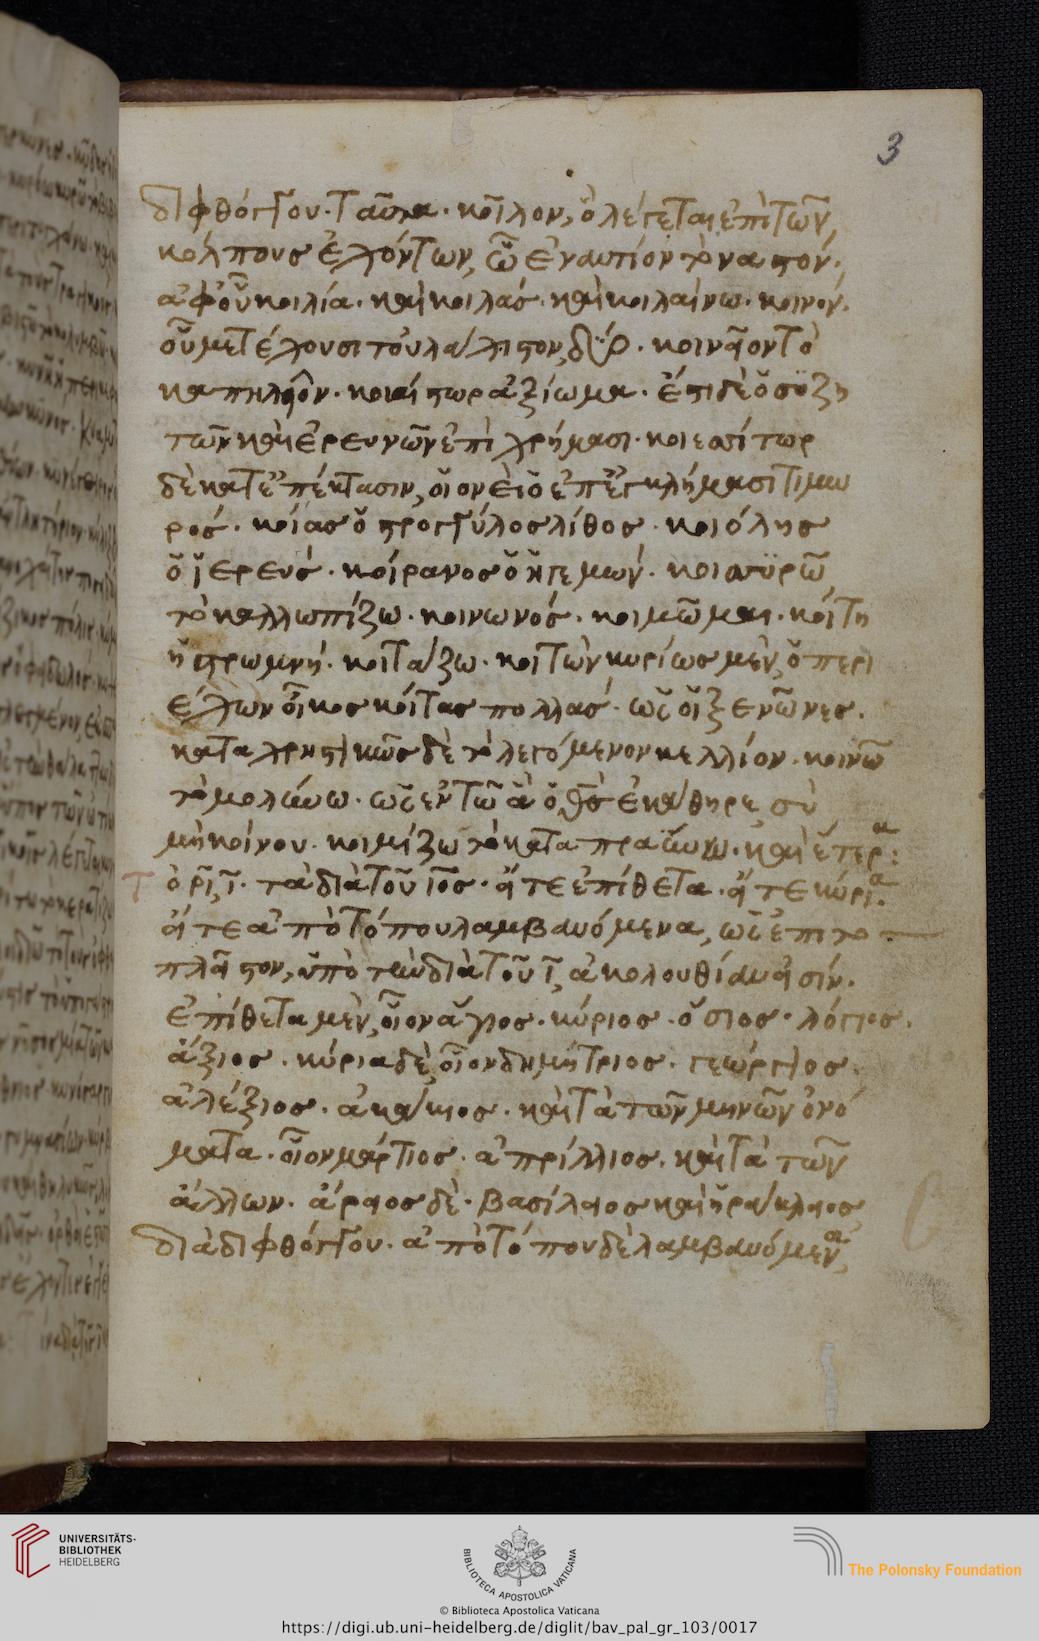 3
διφθόγγου. ταῦτα. κοῖλον, ὃ λέγεται ἐπὶ τῶν
κόλπους ἐχόντων, ὧ ἐναντίον τὸ ναστόν.
ἀφ' οὗ κοιλία. καὶ κοιλάς. καὶ κοιλαίνω. κοινόν.
οὗ μετέχουσι τοὐλάχιστον, δύο. κοινεῖον τὸ
καπηλεῖον. κοιαίστωρ ἀξίωμα. ἔστι δὲ ὁ συζη
τῶν καὶ ἐρευνῶν ἐπὶ χρήμασι. κοιεστίτωρ
δὲ κατ' ἐπέκτασιν, οἷον εἰ ὁ ἐπ' ἐγκλήμασι τιμω
ρός. κοίας ὁ στρογγύλος λίθος. κοιόλης
ὁ ἱερεύς. κοίρανος ὁ ἡγεμών. κοιστυρῶ
τὸ καλλωπίζω. κοινωνός. κοιμῶμαι. κοίτη
ἡ στρωμνή. κοιτάζω. κοιτὼν κυρίως μὲν, ὁ περι
έχων οἶκος κοίτας πολλάς. ὡς οἱ ξενῶνες.
καταχρηστικῶς δὲ τὸ λεγόμενον κελλίον. κοινῶ
τὸ μολύνω. ὡς ἐν τῶ ἃ ὁ θς ἐκάθηρε, σὺ
μὴ κοίνου. κοιμίζω τὸ καταπραΰνω. καὶ ἕτερα:
τὰ διὰ τοῦ ιος. ἅ τε ἐπίθετα. ἅ τε κύρια.
ἅ τε ἀπὸ τόπου λαμβανόμενα, ὡς ἐπὶ το
πλεῖστον, ὑπὸ τὴν διὰ τοῦ ι, ἀκολουθίαν εἰσίν.
ἐπίθετα μὲν, οἷον ἅγιος. κύριος. ὅσιος. λόγιος.
ἄξιος. κύρια δὲ, οἷον δημήτριος. γεώργιος.
ἀλέξιος. ἀκάκιος. καὶ τὰ τῶν μηνῶν ὀνό
ματα. οἷον μάρτιος. ἀπρίλλιος. καὶ τὰ τῶν
ἄλλων. ἄρειος δὲ. βασίλειος καὶ ἡράκλειος
διὰ διφθόγγου. ἀπὸ τόπου δὲ λαμβανόμενα,
UNIVERSITÄTS-
BIBLIOTHEK
HEIDELBERG
BIBLIOTECA APOSTOLICA VATICANA
The Polonsky Foundation
© Biblioteca Apostolica Vaticana
https://digi.ub.uni-heidelberg.de/diglit/bav_pal_gr_103/0017